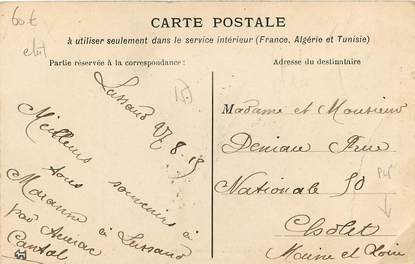 60€
CARTE POSTALE
à utiliser seulement dans le service intérieur (France, Algérie et Tunisie)
Partie réservée à la correspondance:
Adresse du destinataire
Lussaud
Meilleurs
tous souvenirs à
Marianne à Lussaud
par Auriac
Cantal
Madame et Monsieur
Deniau Rue
Nationale 50
Cholet
Maine et Loire